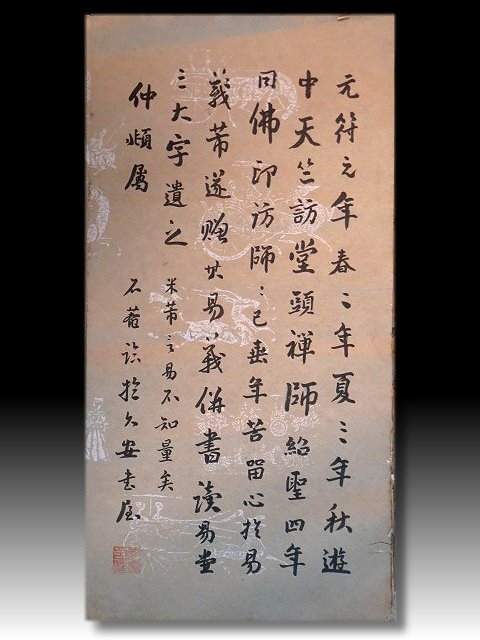 元符元年春二年夏三年秋遊
中天竺訪堂頭禪師紹聖四年
同佛印訪師〻已垂年苦留心於易
義芾遂贈其易義併書讀易堂
三大字遺之
米芾言易不知量矣
仲頫屬
石菴臨於久安書屋